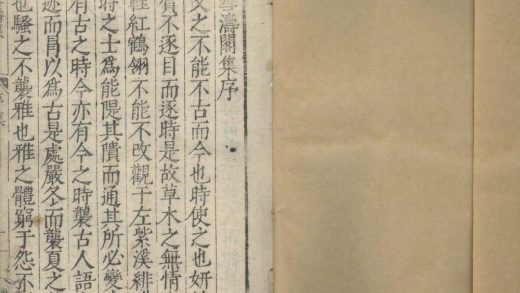 濤閣集序
文之不能不古而今也時使之也妍
質不逐目而逐時是故草木之無情
鞓紅鶴翎不能不改觀于左紫溪緋
時之士為能隄其隤而通其所必變
有古之時今亦有今之時襲古人語
迹而冒以為古是處嚴冬而襲夏之
也騷之不襲雅也雅之體窮于怨不